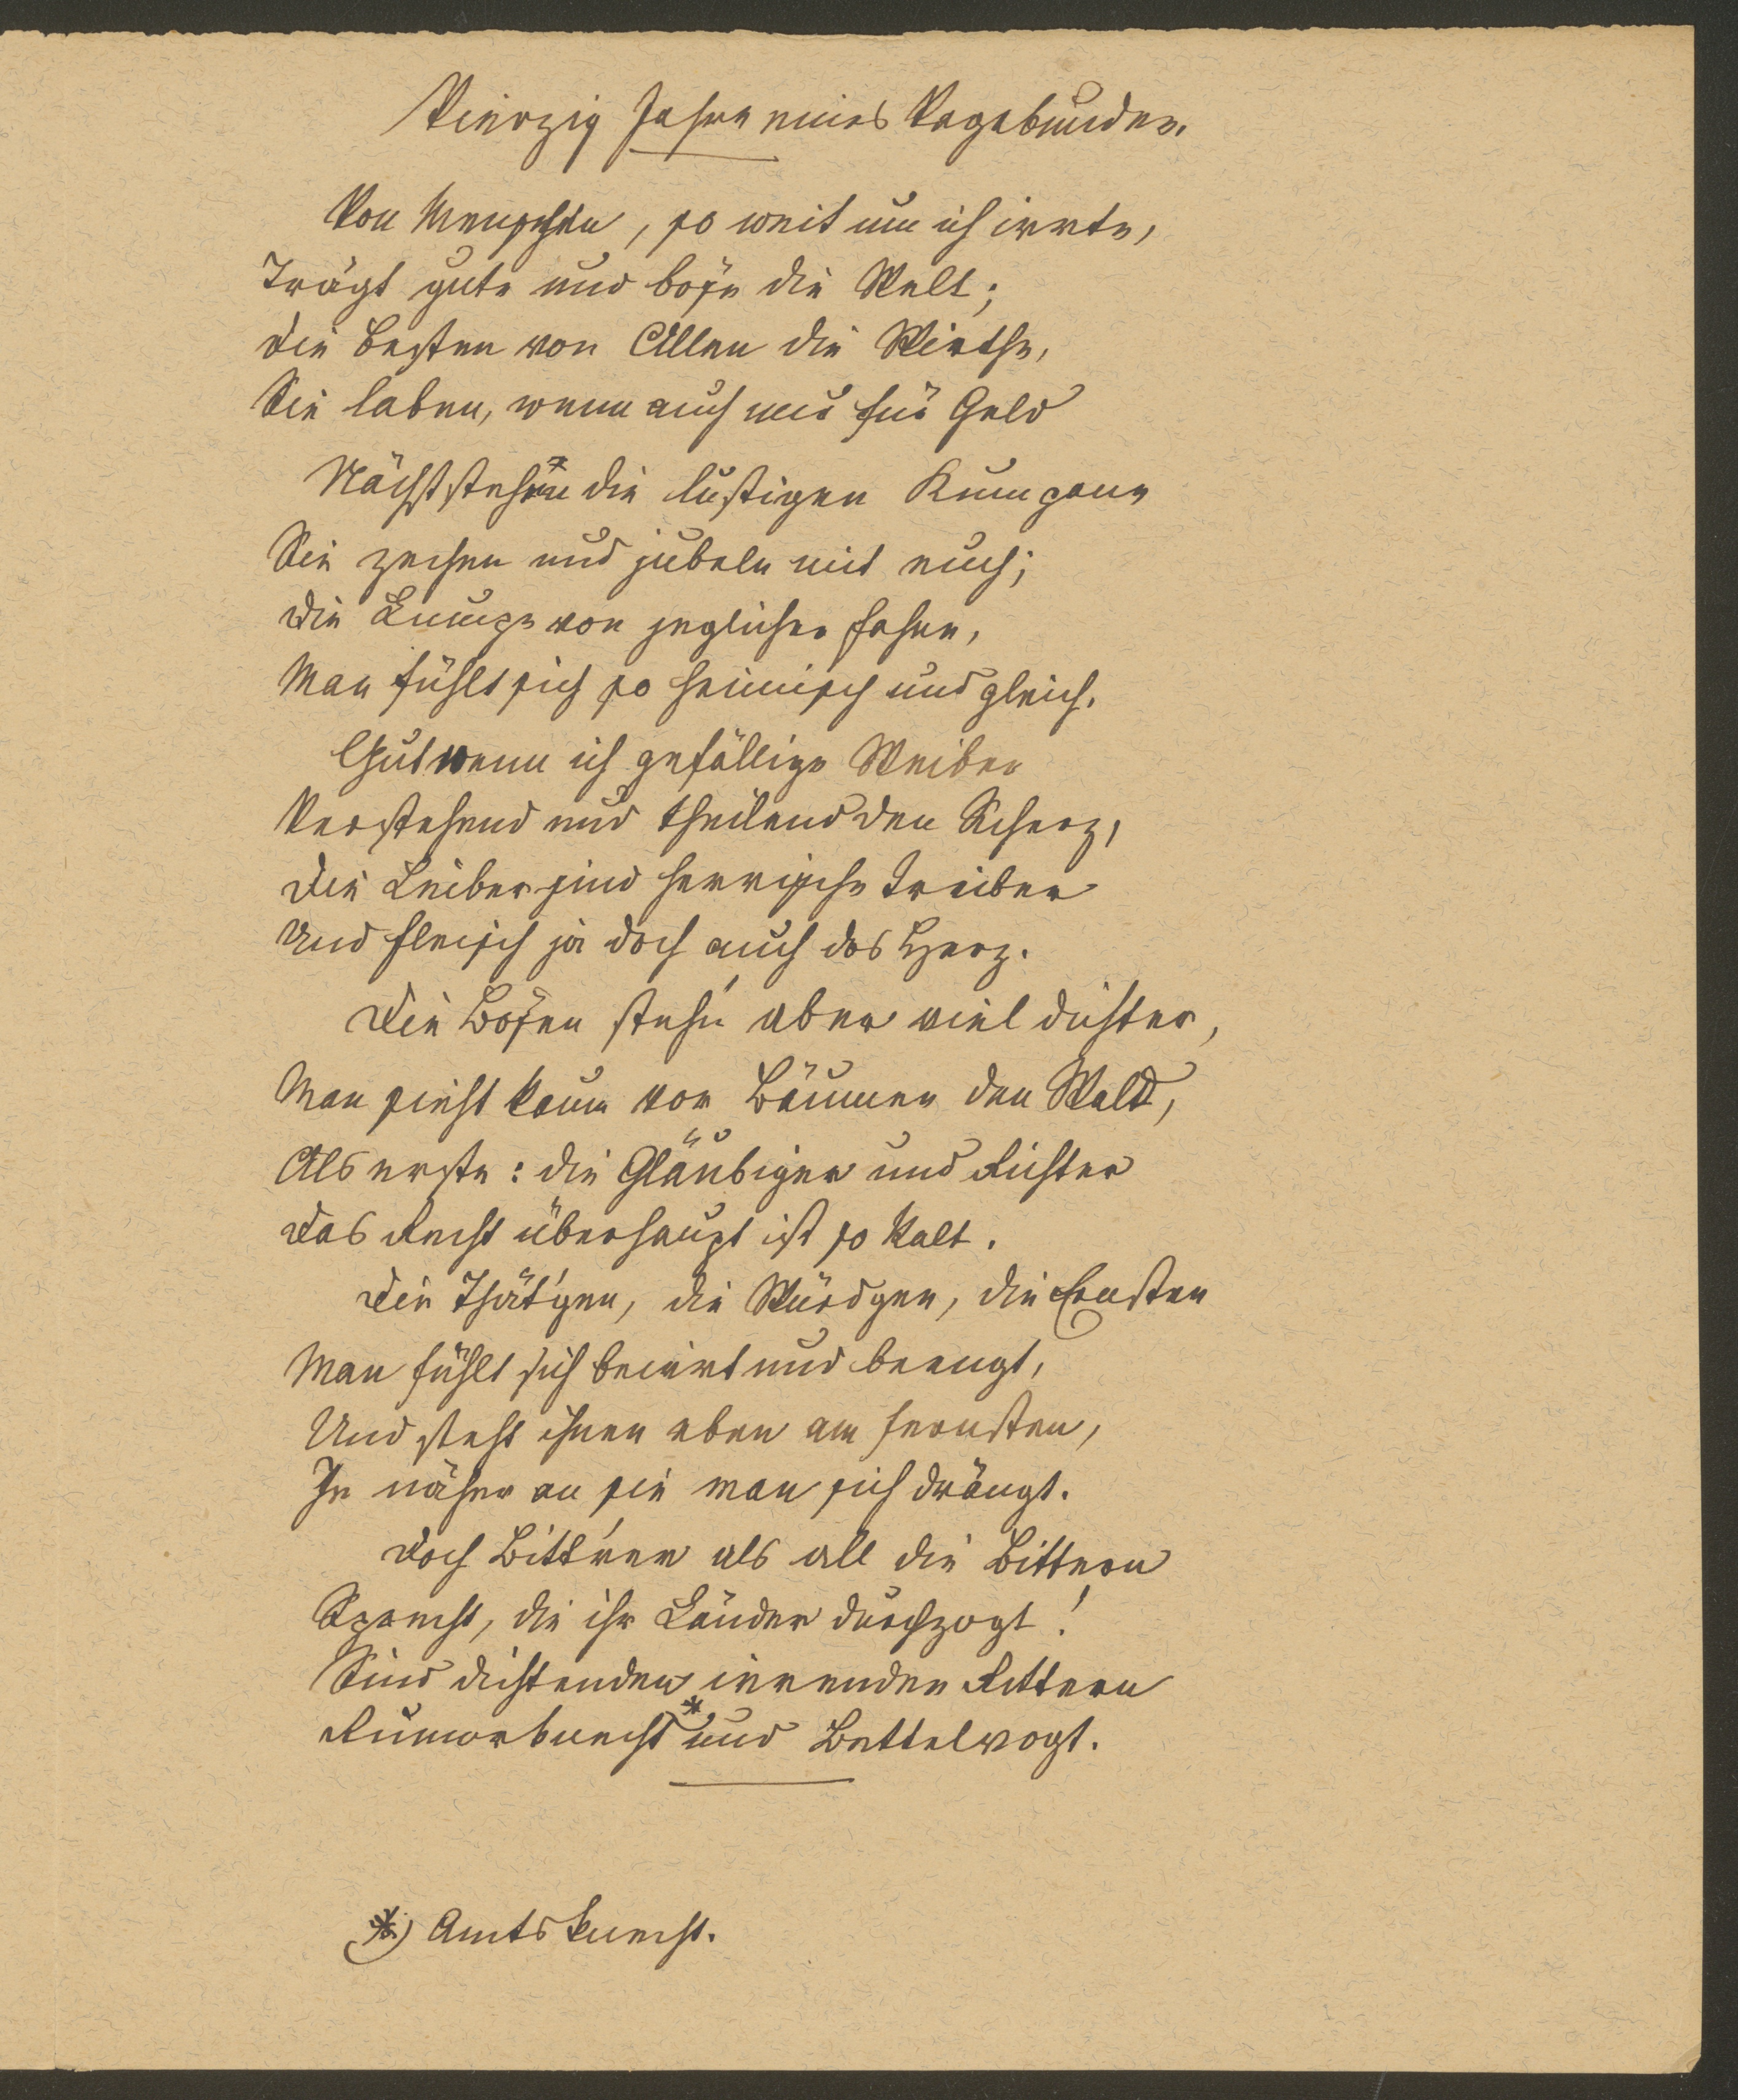 Vierzig Jahre eines Vagabunden.
Von Menschen, so weit um ich irrte,
Trägt gute und böse die Welt;
Die Besten von Allen die Wirthe,
Sie laben, wenn auch nur für Geld
Nächststehn* die lustigen Kumpane
Sie zechen und jubeln mit euch;
Die Lumpe von jeglicher Fahne,
Man fühlt sich so heimisch und gleich.
Gut wenn ich gefällige Weiber
Verstehend und theilend den Scherz,
Die Leiber sind herrische Treiber
Und Fleisch ja doch auch das Herz.
Die Bösen steh'n aber viel dichter,
Man sieht kaum vor Bäumen den Wald,
Als erste: die Gläubiger und Richter
Das Recht überhaupt ist so kalt.
Die Thät'gen, die Würdgen, die Ernsten
Man fühlt sich beirrt und beengt,
Und steht ihnen eben am fernsten,
Je näher an sie man sich drängt.
Doch Bitt'rer als all die Bittern
Sprecht, die ihr Länder durchzogt!
Sind dichtenden irrenden Rittern
Rumorknecht* und Bettelvogt.
*) Amtsknecht.